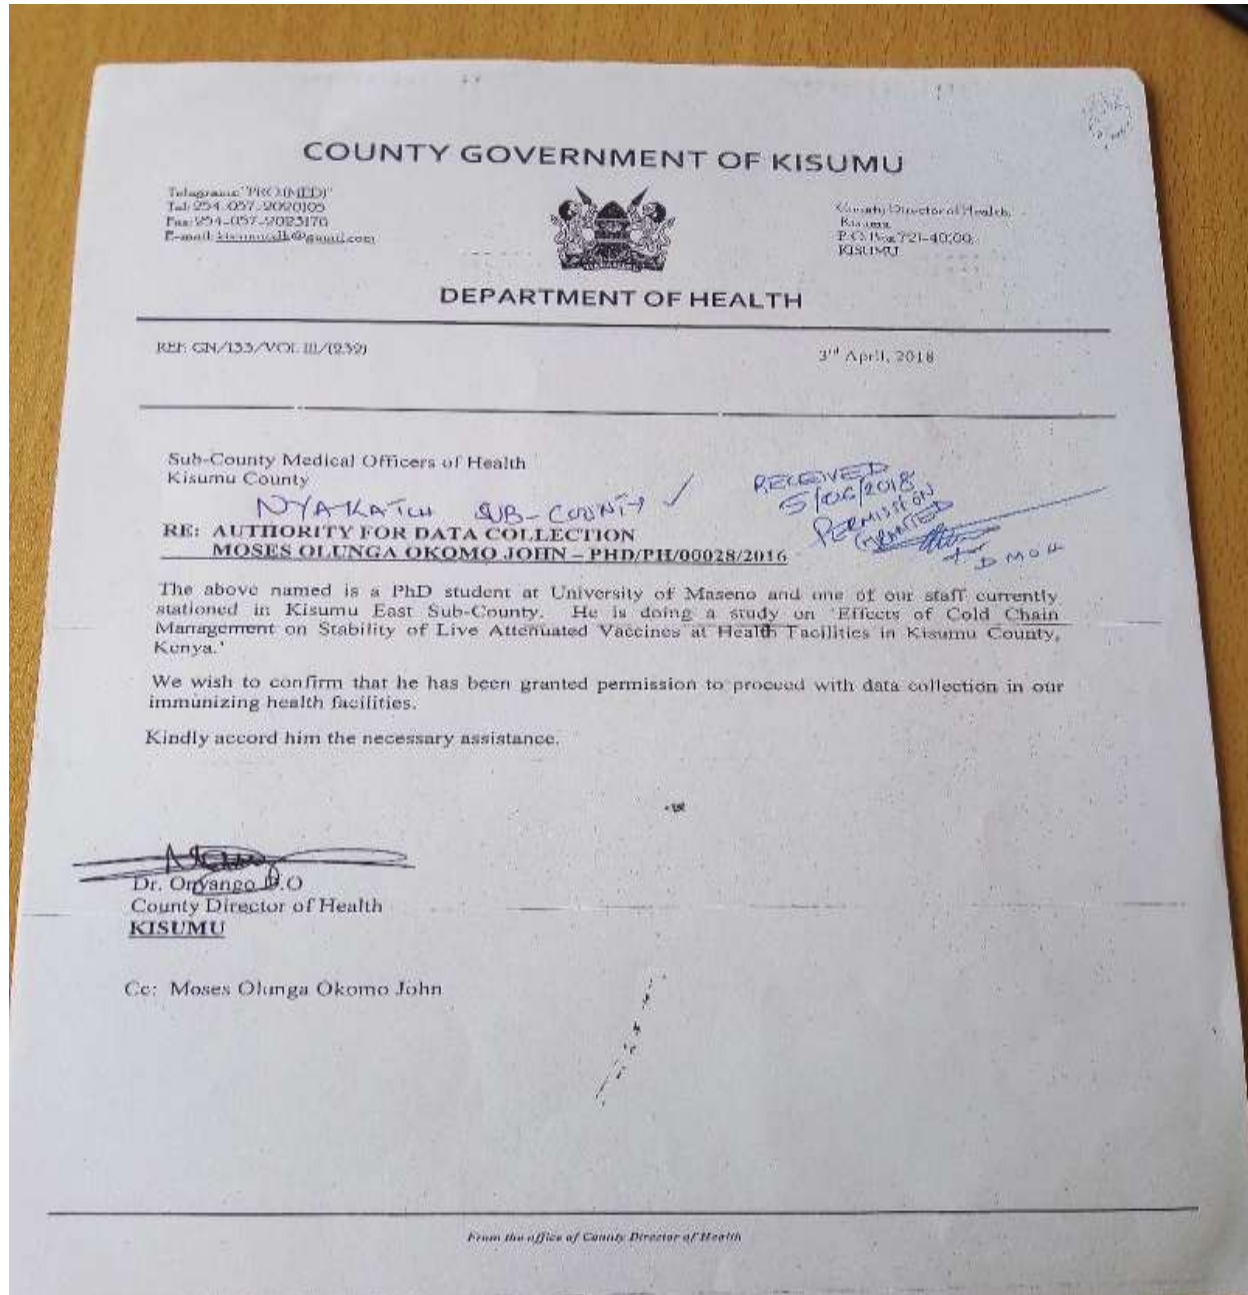 COUNTY GOVERNMENT OF KISUMU
Telegrams: "PRO(MED)"
Tel: 254-057-2020105
Fax: 254-057-2023176
E-mail:
County Director of Health,
Kisumu
P.O. Box 721-40100,
KISUMU
DEPARTMENT OF HEALTH
REF: GN/133/VOL III/(232)
3rd April, 2018
Sub-County Medical Officers of Health
Kisumu County
NYAKATCH SUB-COUNTY ✓
RECEIVED
5/06/2018
PERMISSION
GRANTED
DMOH
RE: AUTHORITY FOR DATA COLLECTION
MOSES OLUNGA OKOMO JOHN – PHD/PH/00028/2016
The above named is a PhD student at University of Maseno and one of our staff currently
stationed in Kisumu East Sub-County. He is doing a study on 'Effects of Cold Chain
Management on Stability of Live Attenuated Vaccines at Health Facilities in Kisumu County,
Kenya.'
We wish to confirm that he has been granted permission to proceed with data collection in our
immunizing health facilities.
Kindly accord him the necessary assistance.
Dr. Onyango D.O
County Director of Health
KISUMU
Cc: Moses Olunga Okomo John
From the office of County Director of Health